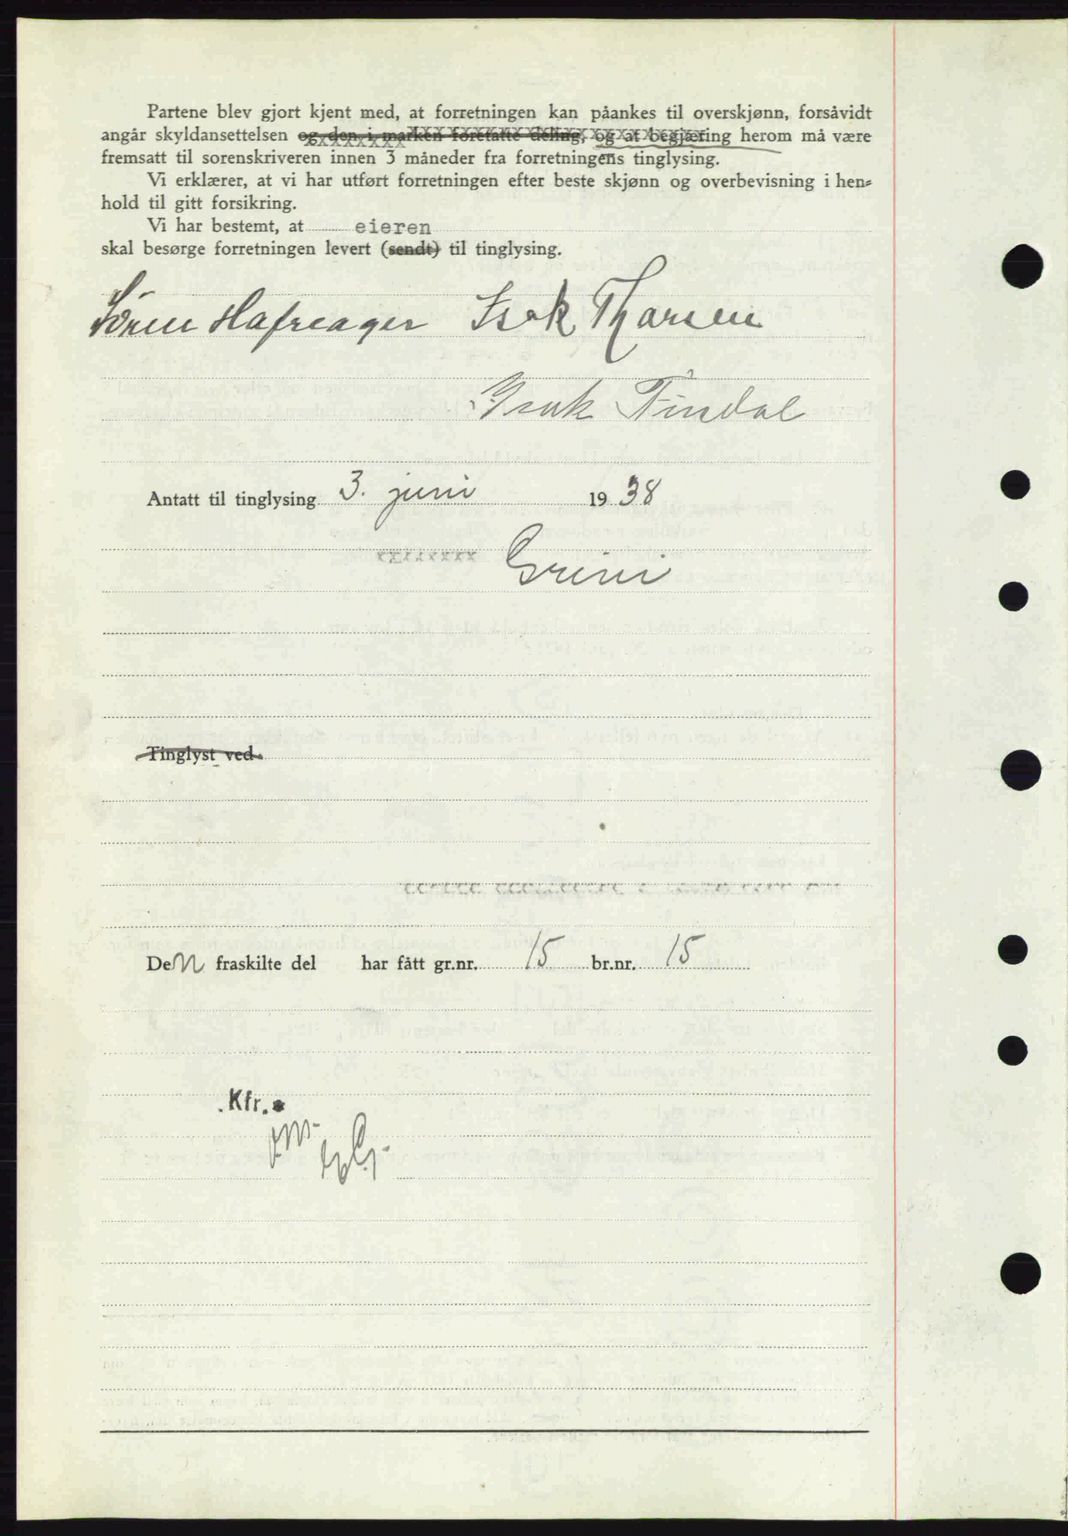 Partene blev gjort kjent med, at forretningen kan påankes til overskjønn, forsåvidt
angår skyldansettelsen og den i marken foretatte deling, og at begjæring herom må være
fremsatt til sorenskriveren innen 3 måneder fra forretningens tinglysing.
Vi erklærer, at vi har utført forretningen efter beste skjønn og overbevisning i hen-
hold til gitt forsikring.
Vi har bestemt, at eieren
skal besørge forretningen levert (sendt) til tinglysing.
Sören Hafreager Isak Tharsen
Isak Tindal
Antatt til tinglysing 3. juni 1938
Grini
Tinglyst ved
Den fraskilte del har fått gr.nr. 15 br.nr. 15
Kfr.